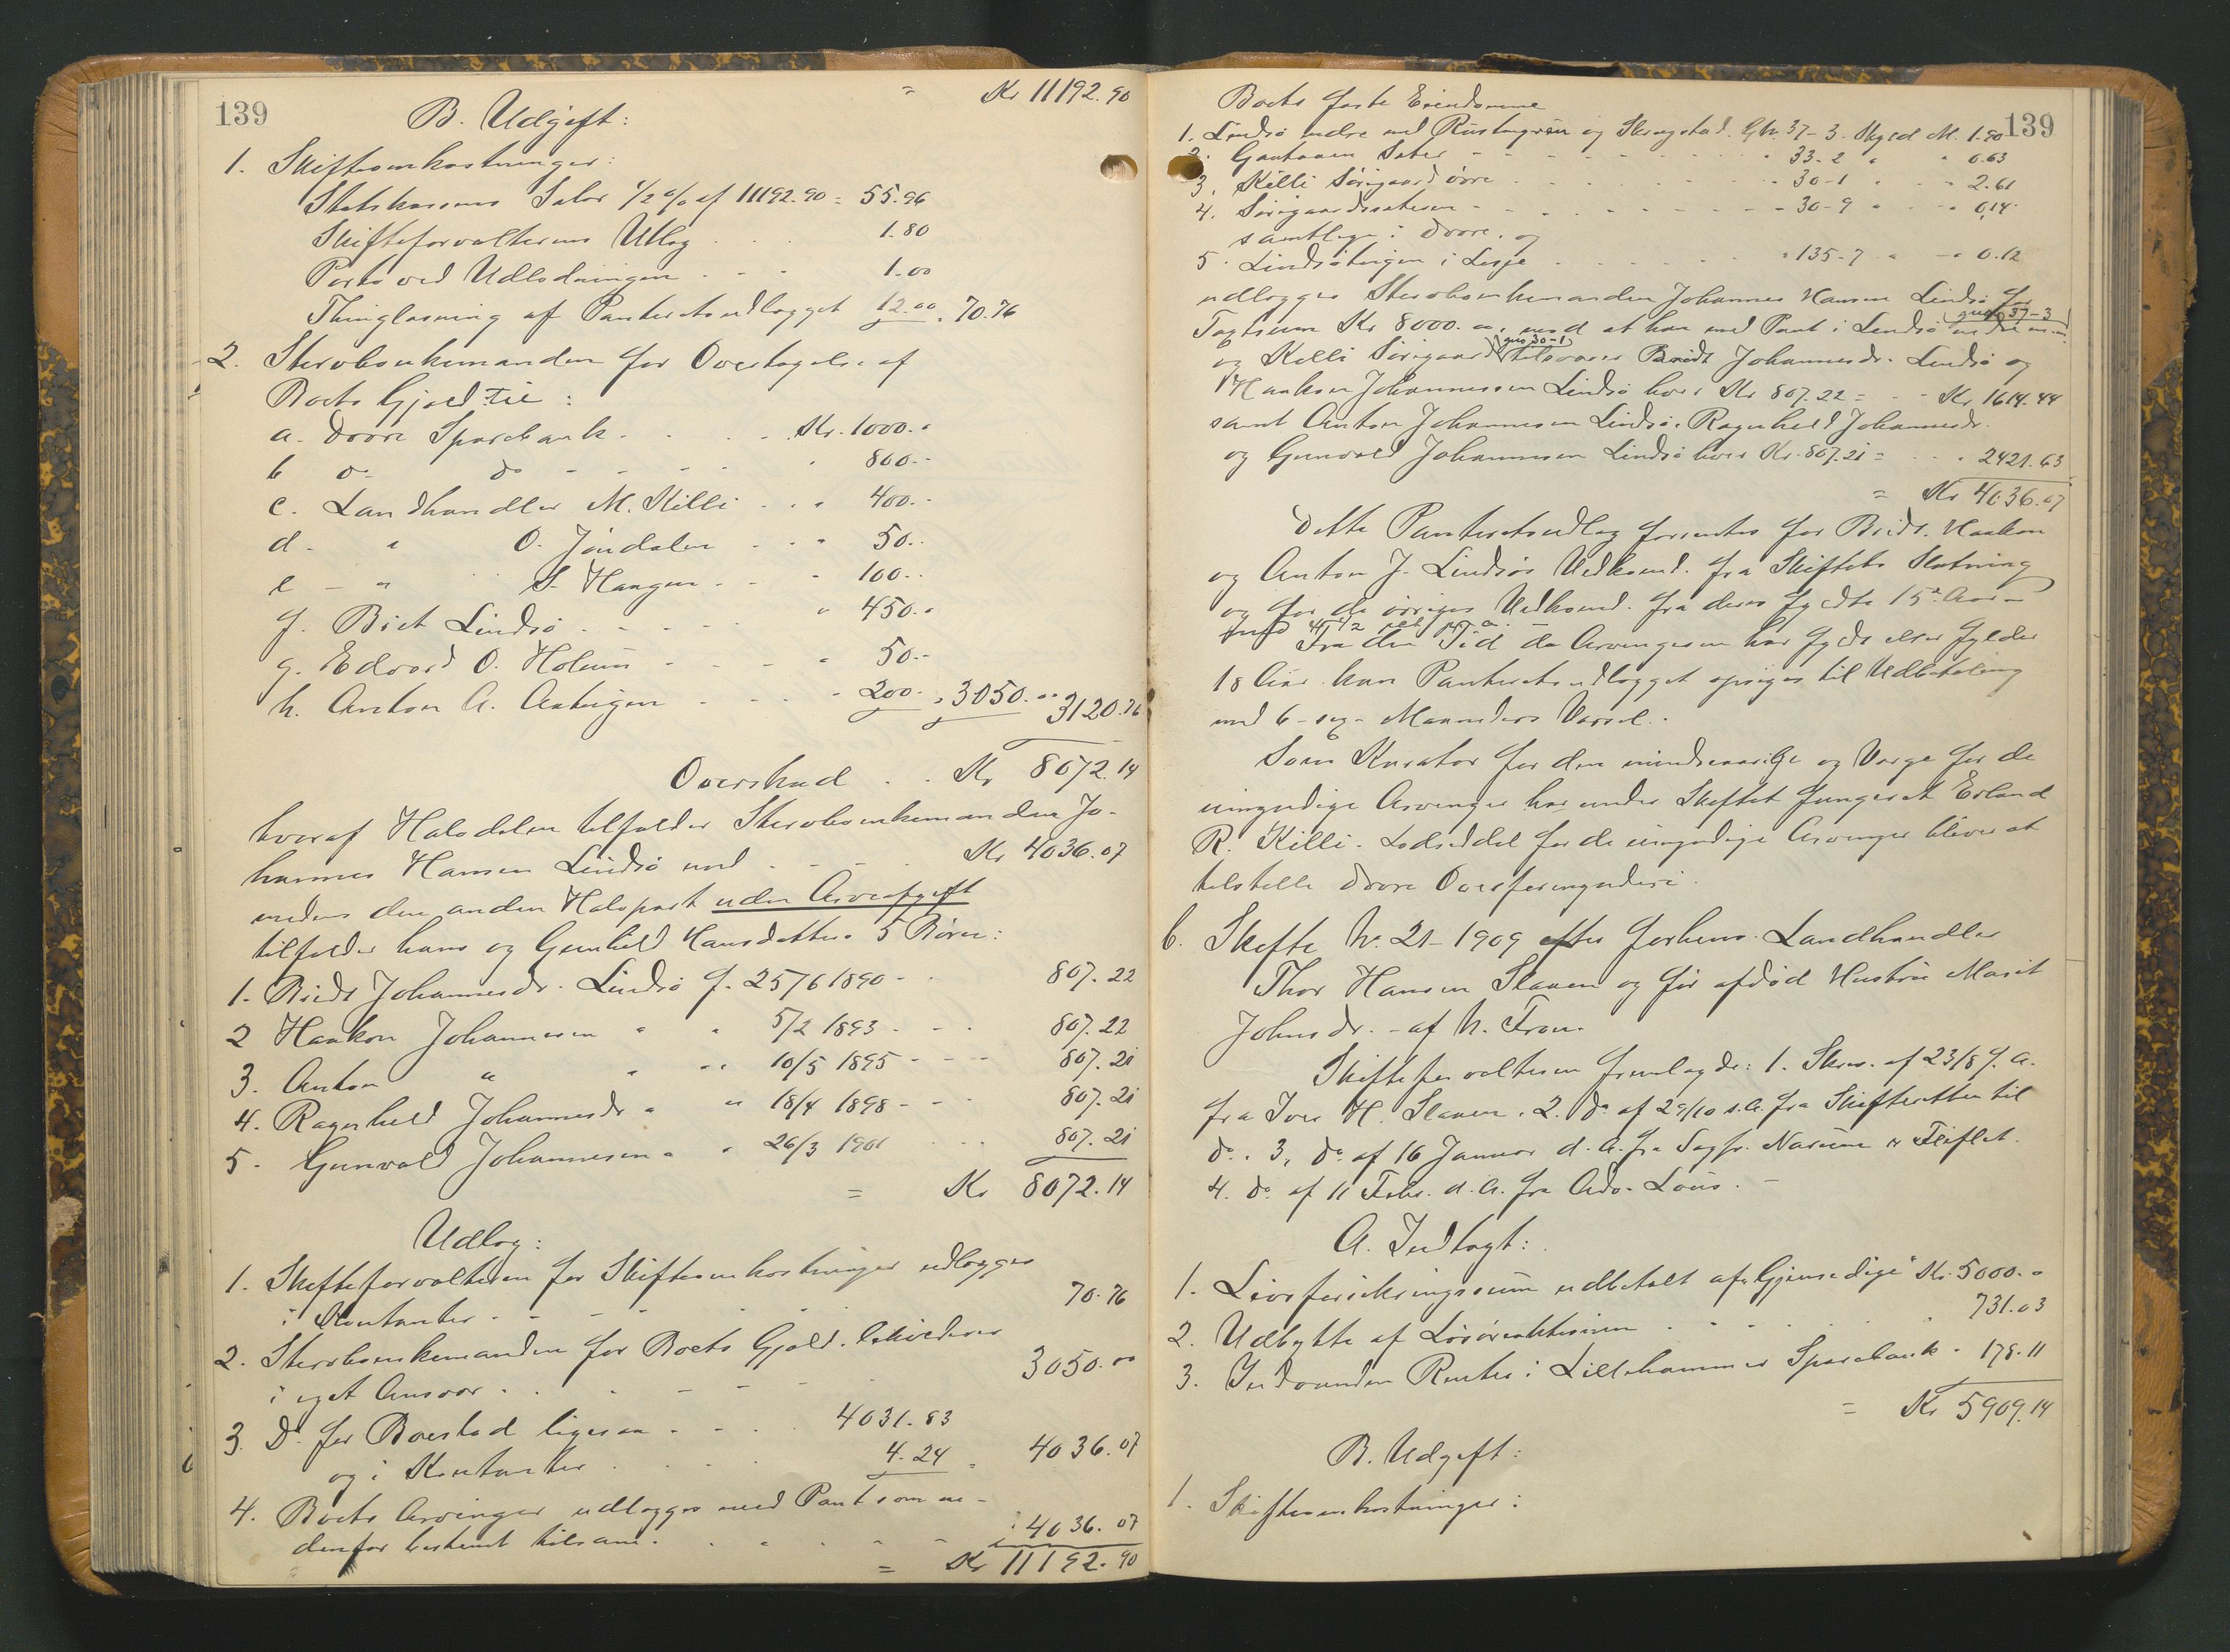 139
= Kr 11192.90
B. Udgift:
1. Skifteomkostninger:
Statskassens Salær 1/2 % af 11192.90 = 55.96
Skifteforvalterens Utlæg . . . 1.80
Porto ved Udlodningen . - - 1.00
Thinglæsning af Panteretsudlægget 12.00 = 70.76
2. Stervboenkemanden for Overtagelse af
Boets Gjæld til:
a. Dovre Sparebank . . . . Kr. 1000.-
b do. do - - - - " 800.-
c. Landhandler M. Killi . . " 400.-
d. " O. Jøndalen . . " 50.-
e - " S. Haugen . . " 100.-
f. Brit Lindsø . - - - " 450.-
g. Edvard O. Holum - - - " 50.-
h. Anton A. Aatuigen - - - " 200.- , 3050.00 3120.76
Overskud . . Kr 8072.14
hvoraf Halvdelen tilfalder Stervboenkemanden Jo-
hannes Hansen Lindsø med . - - . Kr 4036.07
medens den anden Halvpart uden Arveafgift
tilfalder hans og Gunhild Hansdatters 5 Børn:
1. Brit Johannesdr. Lindsø f. 25/6 1890 - . 807.22
2 Haakon Johannesen " " 5/2 1893 . - . 807.22
3. Anton " " " 10/5 1895 - - - 807.21
4. Ragnhild Johannesdr " " 18/4 1898 - - - 807.21
5. Gunvald Johannesen " " 26/3 1901 . . . 807.21
= Kr 8072.14
Udlæg:
1. Skifteforvalteren for Skifteomkostninger udlægges
i Kontanter . - - - - - 70.76
2. Stervboenkemanden for Boets Gjæld likvideres
i eget Ansvar . . - - - - 3050.00
3. Do for Boeslod ligesaa . - . . 4031.83
og i Kontanter . . . . 4.24 = 4036.07
4. Boets Arvinger udlægges med Pant som ne-
denfor bestemt tilsam. . . . - - : 4036.07
= Kr 11192.90
139
Boets faste Eiendomme
1. Lindsø nedre med Rustugrøn og Skrugstad. Gb. 37-3. Skyld M. 1.90
2. Gautaaen Sæter - - - - - " 33-2 " " 0.63
3. Killi Sørigaard øvre . . . . . " 30-1 " " 2.61
4. Sørigaardssæteren - - . - - - 30-9 " " 0.14
samtlige i Dovre, og
5. Lindsøtuigen i Lesje . . . . . " 135-7 " " 0.12
udlægges Stervboenkemanden Johannes Hansen Lindsø for
gno 37-3
Taxtsum Kr 8000.00, mod at han med Pant i Lindsø nedre
gno 30-1
og Killi Sørigaard tilsvarer Brit Johannesdr. Lindsø og
Haakon Johannessen Lindsø hver Kr 807.22 = . - Kr 1614.44
samt Anton Johannesen Lindsø, Ragnhild Johannesdr.
og Gunvald Johannesen Lindsø hver Kr. 807.21 = . . . 2421.63
= Kr 4036.07
Dette Panteretsudlæg forrentes for Brit, Haakon
og Anton J. Lindsøs Vedkomd. fra Skiftets Slutning
og for de øvriges Vedkomd. fra deres fyldte 15de Aar -
med 4 1/2 pct p. a.
Fra den Tid da Arvingerne har fyldt eller fylder
18 Aar kan Panteretsudlægget opsiges til Udbetaling
med 6 - sex - Maaneders Varsel. .
Som Kurator for den mindreaarige og Værge for de
umyndige Arvinger har under Skiftet fungeret Erland
R. Killi. Lodseddel for de umyndige Arvinger bliver at
tilstille Dovre Overformynderi.
6. Skifte No. 21-1909 efter forhenv. Landhandler
Thor Hansen Slaaen og før afdød Hustru Marit
Johnsdr. - af N. Fron.
Skifteforvalteren fremlagde: 1. Skriv. af 23/8 f. A.
fra Iver H. Slaaen. 2. Do af 29/10 s. A. fra Skifteretten til
do. 3, do. af 16 Januar d. A. fra Sagfr. Narum & Fliflet.
4. do. af 11 Febr. d. A. fra Adv. Lous. -
A. Indtægt:
1. Livsforsikringssum udbetalt af "Gjensidige" Kr. 5000.-
2. Udbytte af Løsøreauktionen . . . . . 731.03
3. Indvundne Renter i Lillehammer Sparebank . 178.11
= Kr 5909.14
B. Udgift:
1. Skifteomkostninger: